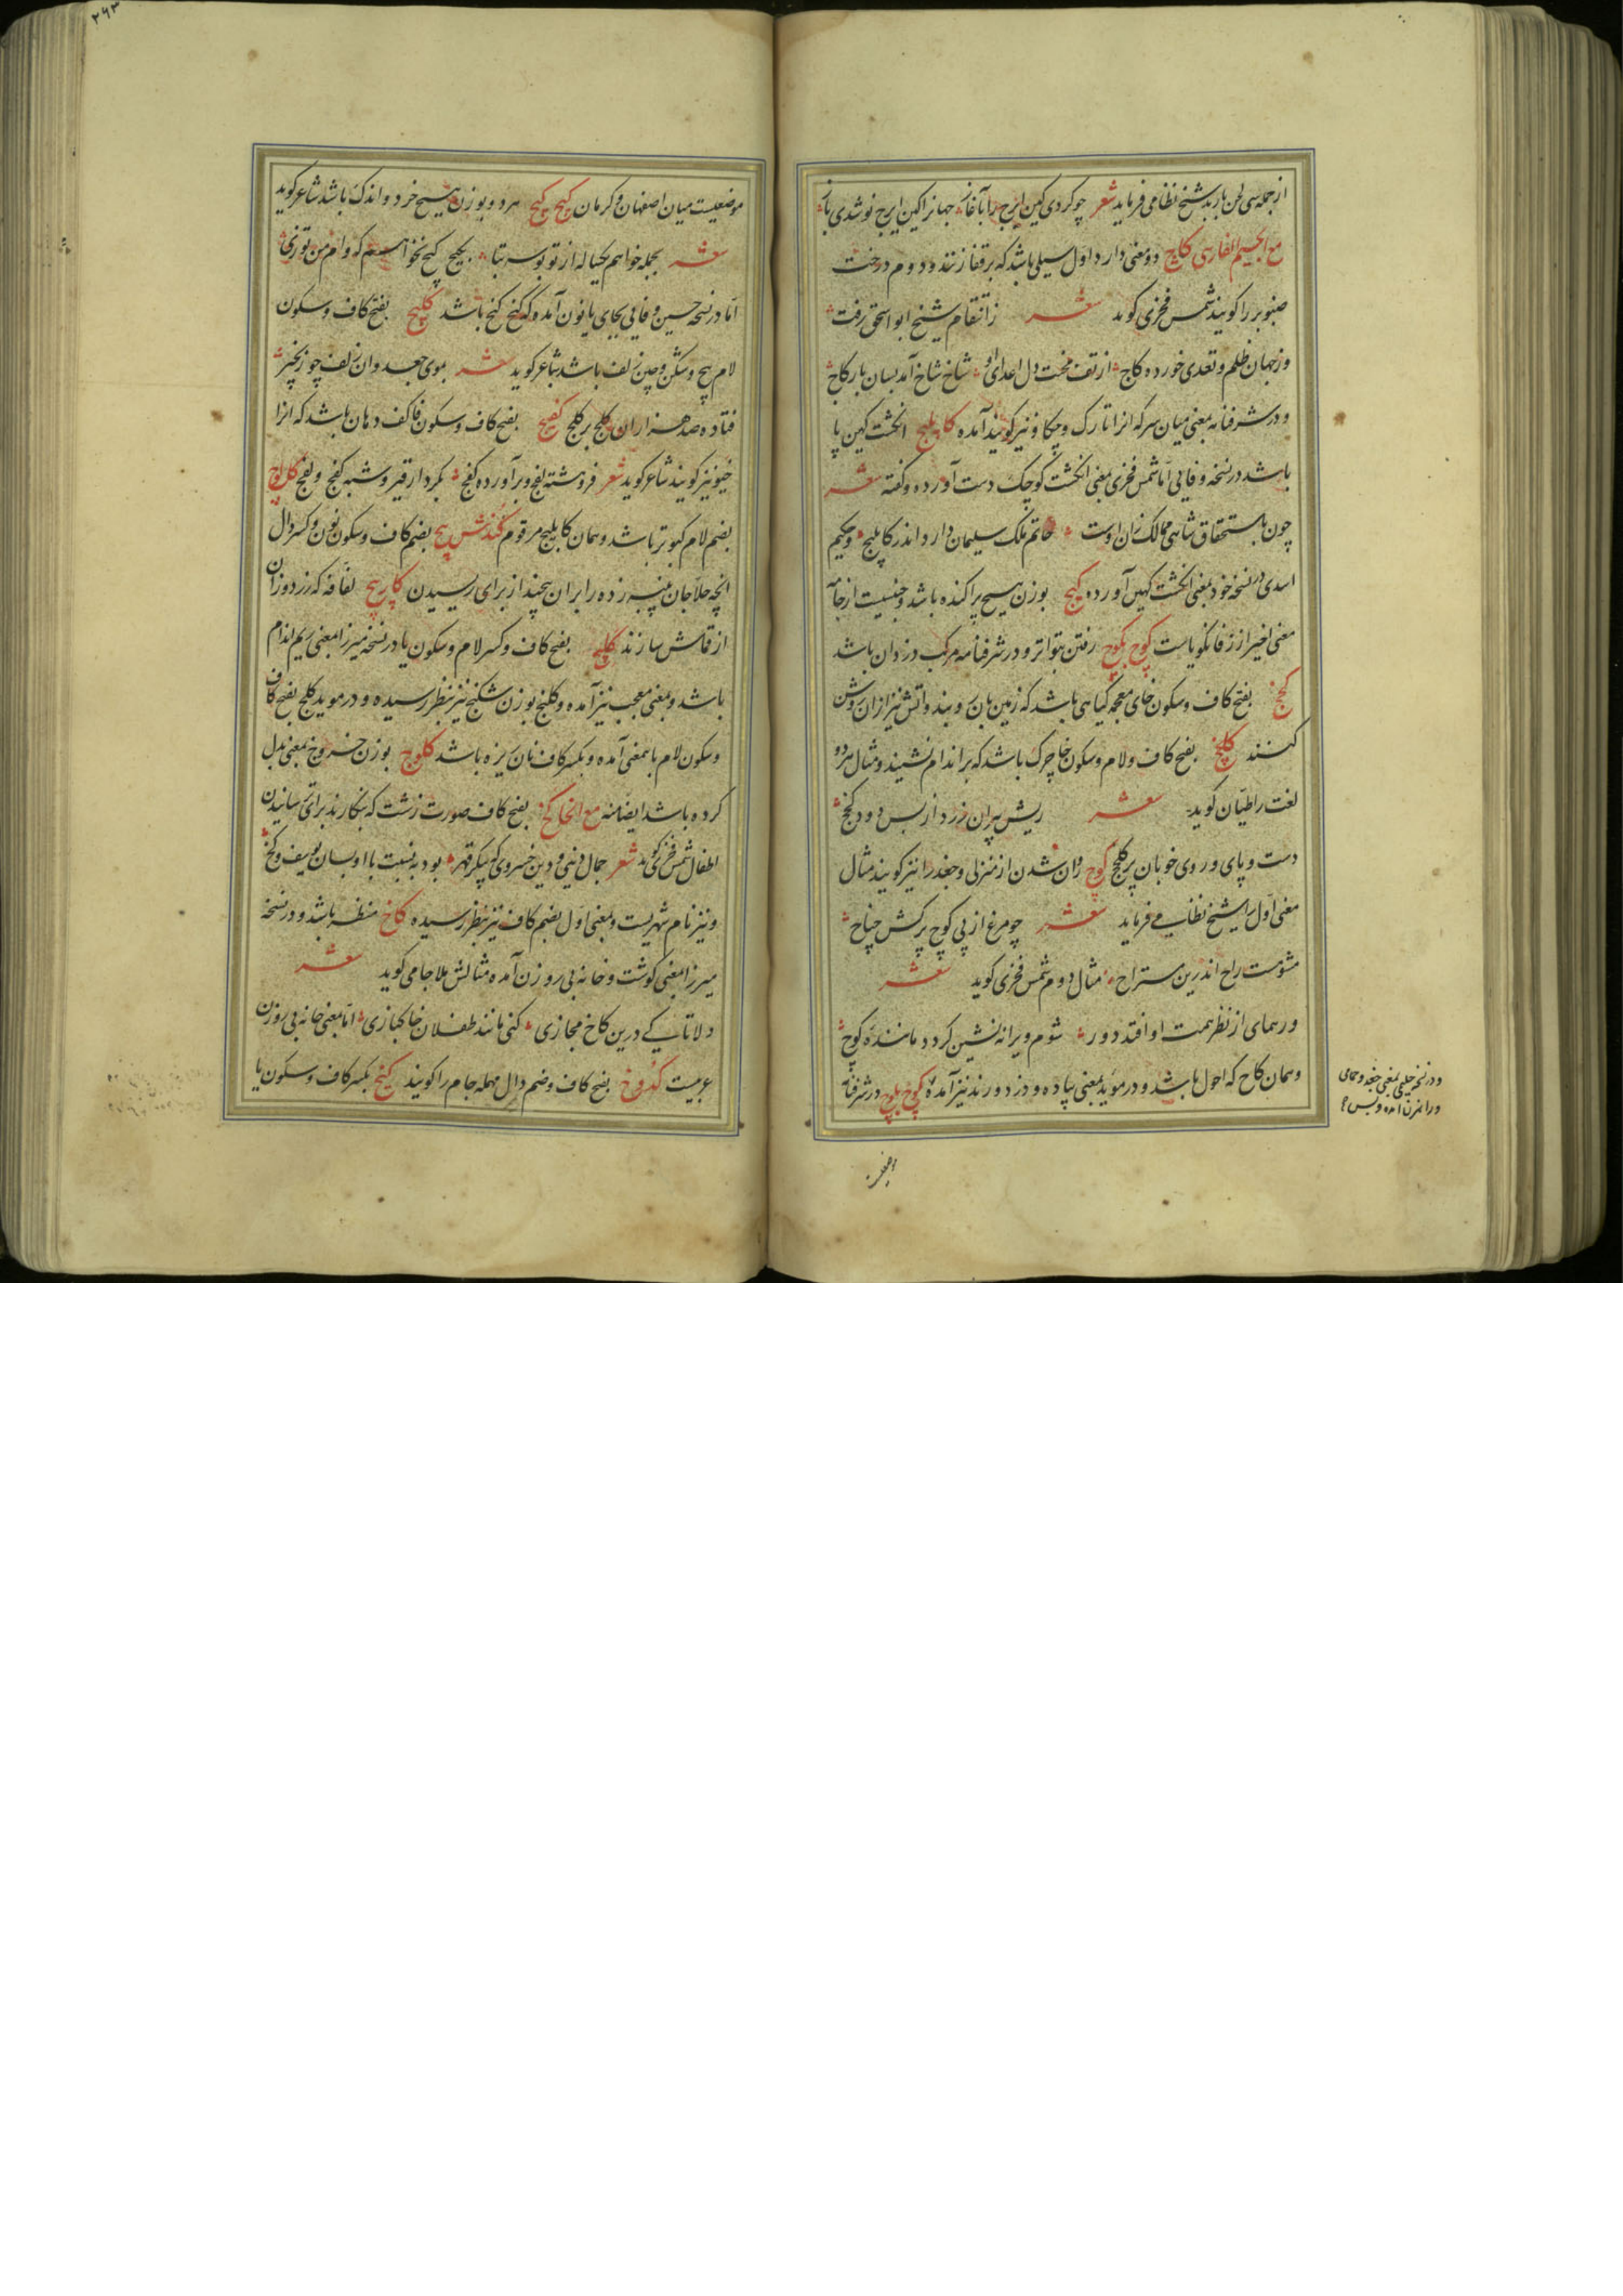 از جمله سی لحن باربد شیخ نظامی فرماید شعر چو کردی کین ایرج را آغاز جهانرا کین ایرج نو شدی باز
مع الجیم الفارسی کاچ دو معنی دارد اول سیلی باشد که بر قفا زنند و دوم درخت
صنوبر را گویند شمس فخری گوید شعر ز انتقام شیخ ابو اسحق رفت
وز جهان ظلم و تعدی خورده کاج از تف محنت دل اعدای او شاخ شاخ آمد بسان بار کاج
و در شرفنامه بمعنی میان سر که انرا تارک و چکاو نیز گویند آمده کابلیج انگشت کهین پا
باشد در نسخه وفایی اما شمس فخری بمعنی انگشت کوچک دست آورده و گفته شعر
چون باستحقاق شاهی ممالک زان اوست خاتم ملک سلیمان دارد اندر کابلیج و حکیم
اسدی در نسخه خود بمعنی انگشت کهین آورده کیج بوزن هیچ پراکنده باشد و جنسیت از جامه
معنی اخیر از زفانگویاست کوچ بکوچ رفتن بتواتر و در شرفنامه مرکب دزدان باشد
کخج بفتح کاف و سکون خای معجمه گیاهی باشد که زمین بان روبند و اتش نیز ازان روشن
کنند کلخج بفتح کاف و لام و سکون خا چرک باشد که بر اندام نشیند و مثال هر دو
لغت را طیان گوید شعر ریش پیران زرد از بس دود کخج
دست و پای و روی خوبان پر کلخج کوچ روان شدن از منزلی و جغد را نیز گویند مثال
معنی اول را شیخ نظامی فرماید شعر چو مرغ از پی کوچ برکش جناح
مشو مست راح اندرین مستراح مثال دوم شمس فخری گوید شعر
ور همای از نظر همت او افتد دور شوم و ویرانه نشین گردد ماننده کوچ
و همان کاج که احول باشد و در موید بمعنی پیاده و دزد و رند نیز آمده کوچ بلوچ در شرفنامه
و در نسخه حلیمی بمعنی جغد و حمامی
موضعیست میان اصفهان و کرمان کیچ کیچ هر دو بوزن هیچ خرد و اندک باشد شاعر گوید
شعر بجمله خواهم یکیاله از تو بوسه بتا بکیچ کیچ نخواهم که وام من توزی
اما در نسخه حسین وفایی بجای یا نون آمده که کنج کنج باشد کلیچ بفتح کاف و سکون
لام پیچ و شکن و چین زلف باشد شاعر گوید شعر بموی جعد و ان زلف چو زنجیر
فتاده صد هزاران کلج بر کلج کفیج بفتح کاف و سکون فا کف دهان باشد که انرا
خیو نیز گویند شاعر گوید شعر فروهشته لفج و برآورده کفج بکردار قیر و شبه کفج و لفج کل اوچ
بضم لام کبوتر باشد و همان کابلیج مرقوم کندش پیچ بضم کاف و سکون نون و کسر دال
انچه حلاجان پنبه زده را بران پیچند از برای رسیدن کارپیچ لفافه که زردوزان
از قماش سازند کلیج بفتح کاف و کسر لام و سکون یا در نسخه میرزا بمعنی ریم اندام
باشد و بمعنی معجب نیز آمده و کلنج بوزن شکنج نیز بنظر رسیده و در موید کلج بفتح کاف
و سکون لام بامعنی آمده و بکسر کاف نان ریزه باشد کلوج بوزن خروج بمعنی بدل
کرده باشد ایضا منه مع الخا کخ بفتح کاف صورت زشت که بنگارند برای ترسانیدن
اطفال شمس فخری گوید شعر جمال دنیی و دین خسروی که پیکر قهر بود به نسبت با او بسان یوسف و کخ
و نیز نام شهریست و بمعنی اول بضم کاف نیز بنظر رسیده کاخ منظره باشد و در نسخه
میرزا بمعنی گوشت و خانه بی روزن آمده مثالش ملا جامی گوید شعر
دلا تا کی درین کاخ مجازی کنی مانند طفلان خاکبازی اما بمعنی خانه بی روزن
عربیست کدوخ بفتح کاف و ضم دال مهمله جام را گویند کیخ بکسر کاف و سکون یا